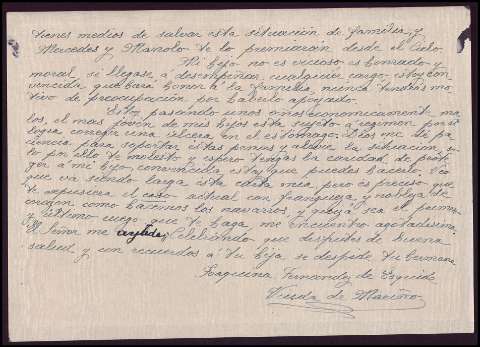 tienes medios de salvar esta situación de familia, y
Mercedes y Manolo te lo premiarán desde el Cielo
Mi hijo no es vicioso es honrado y
moral, si llegase a desempeñar cualquier cargo estoy con
vencida que hará honor a la familia, nunca tendrás mo
tivo de preocupación por haberlo apoyado.
Estoy pasando unos años económicamente ma
los, el mas joven de mis hijos esta sujeto a regimen para
logra corregir una ulcera en el estomago. Dios me dé pa
ciencia para soportar estas penas y alivie la situación,
to por ello te molesto y espero tengas la caridad de prote
ger a mi hijo, convencida estoy que puedes hacerlo.
que va siendo larga esta carta mia, pero es preciso que
te expusiera el caso actual con franqueza y nobleza de
corazón como hacemos los navarros, y sea el primer
y ultimo ruego que te haga, me encuentro agotadisima,
El Señor me ayude, Celebrando que disfrutes de buena
salud, y con recuerdos a tu hija se despide tu hermana
Joaquina Fernandez de Ezquide
Viuda de Mariño